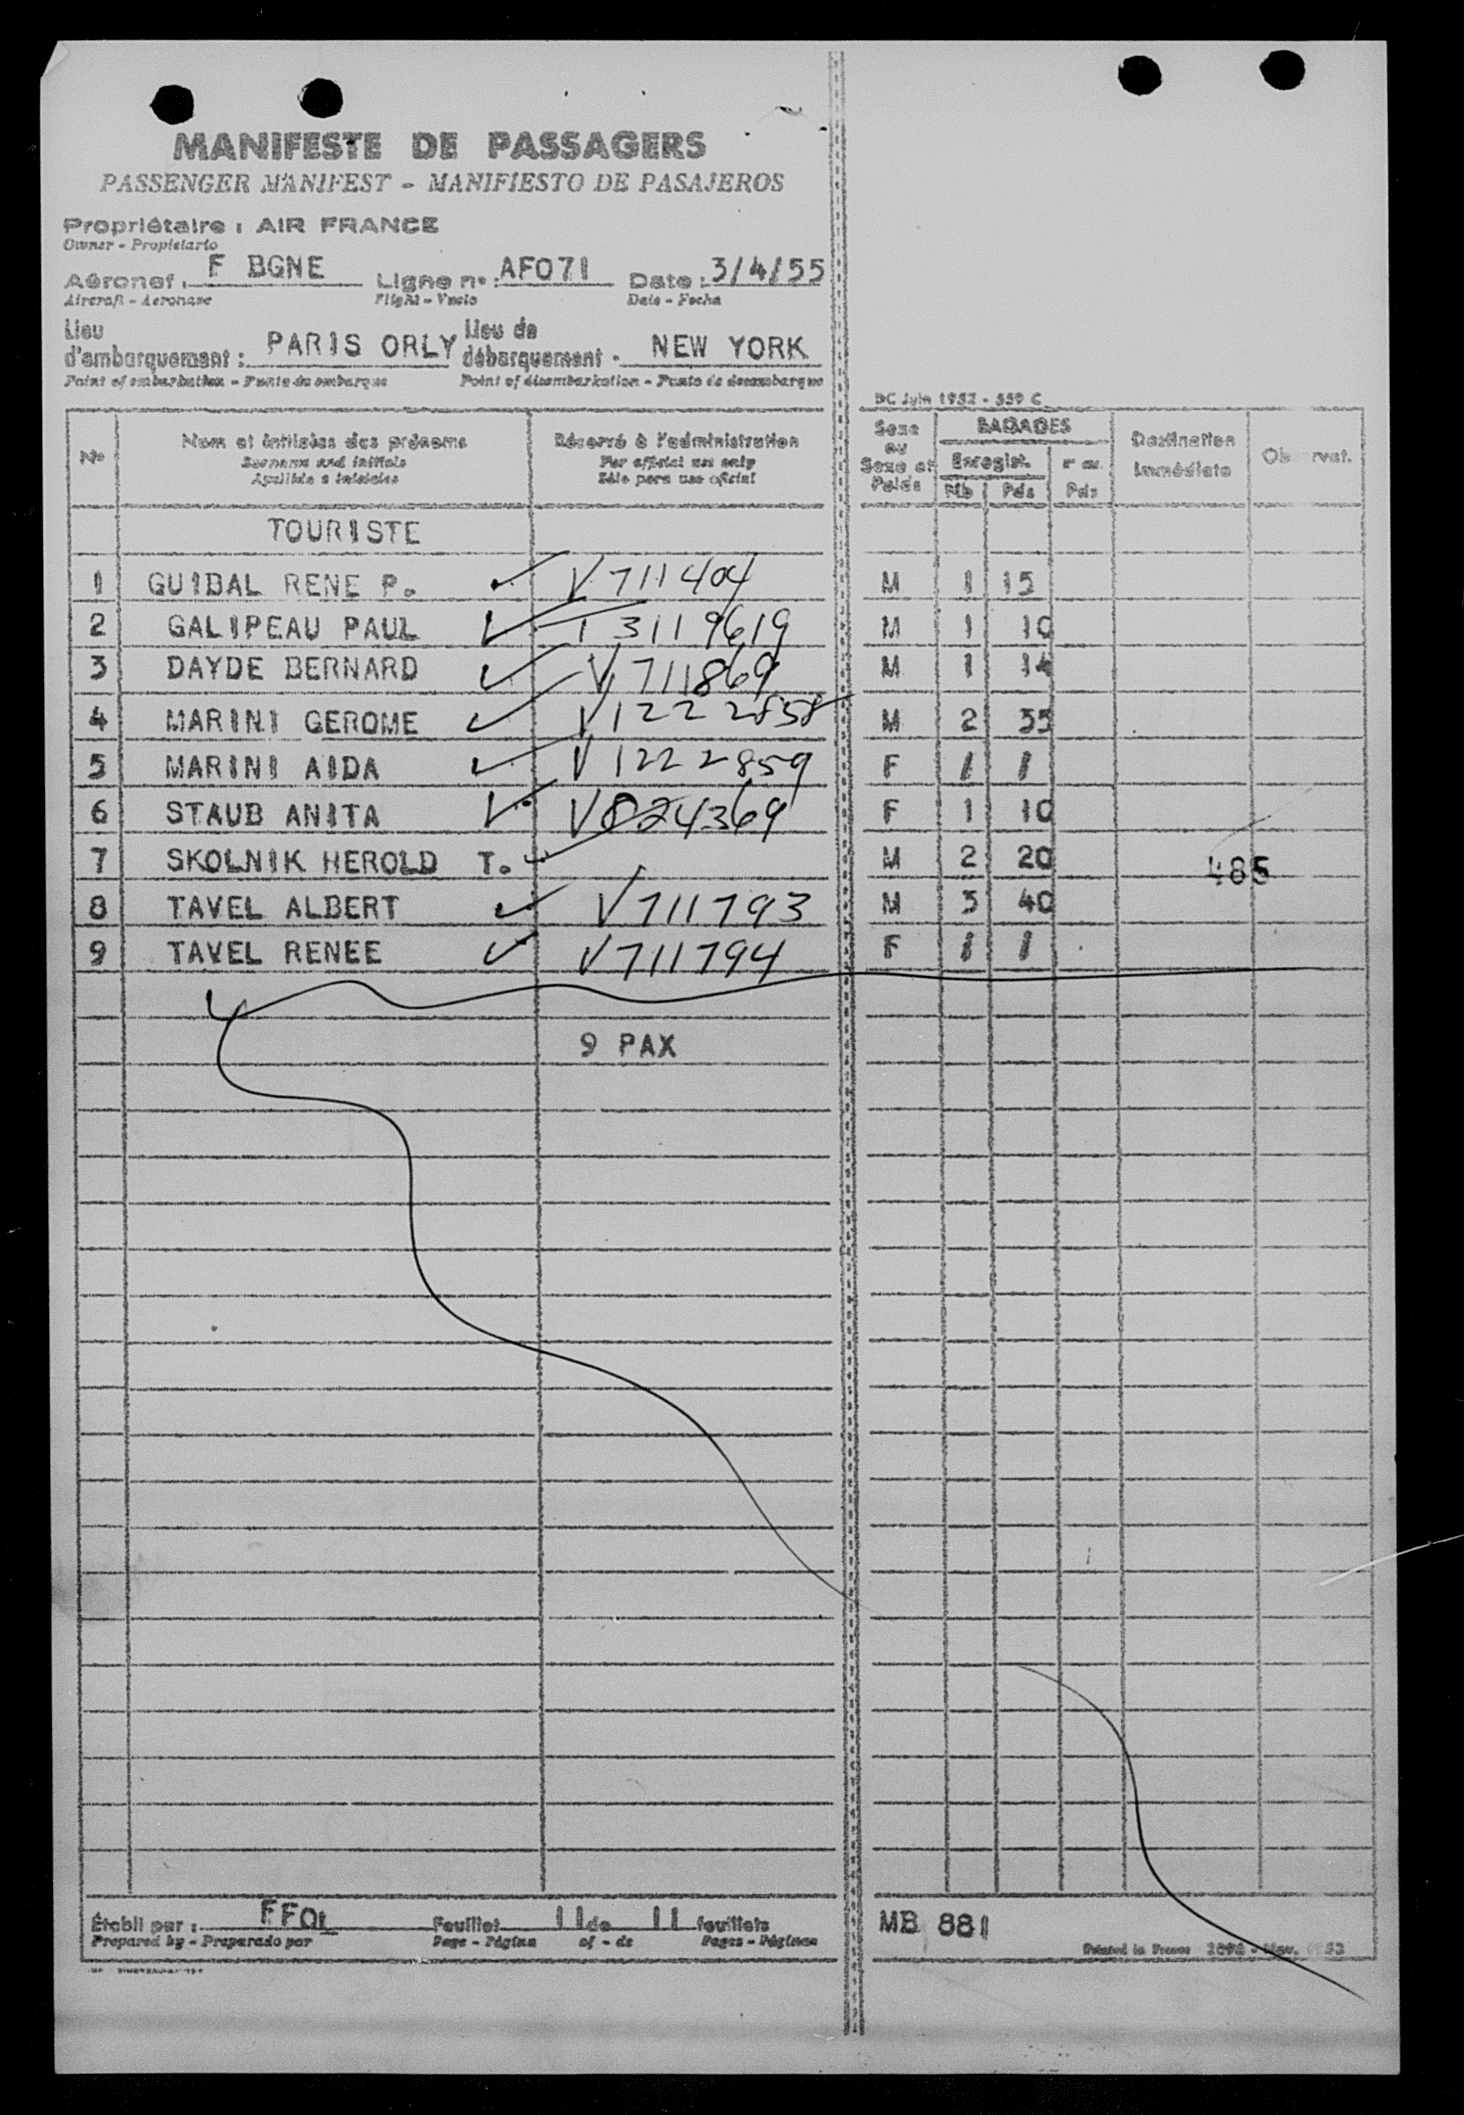 MANIFESTE DE PASSAGERS
PASSENGER MANIFEST - MANIFIESTO DE PASAJEROS
Propriétaire : AIR FRANCE
Owner - Propietario
Aéronef : F BGNE Ligne n° : AF071 Date : 3/4/55
Aircraft - Aeronave Flight - Vuelo Date - Fecha
Lieu d'embarquement : PARIS ORLY Lieu de débarquement - NEW YORK
Point of embarkation - Punto de embarque Point of disembarkation - Punto de desembarque
DC Juin 1952 - 559 C
No Nom et initiales des prénoms Réservé à l'administration Sexe ou Sexe et Poids BAGAGES Destination immédiate Observat.
Surname and initials For official use only Enregist.
Apellido e iniciales Sólo para uso oficial Nb Pds Pds
TOURISTE
1 GUIBAL RENE P. V711404 M 1 15
2 GALIPEAU PAUL T3119619 M 1 10
3 DAYDE BERNARD V711869 M 1 14
4 MARINI GEROME V1222858 M 2 35
5 MARINI AIDA V1222859 F / /
6 STAUB ANITA V824369 F 1 10
7 SKOLNIK HEROLD T. M 2 20 485
8 TAVEL ALBERT V711793 M 3 40
9 TAVEL RENEE V711794 F / /
9 PAX
Établi par : FFOL Feuillet 11 de 11 feuillets MB 881
Prepared by - Preparado por Page - Página of - de Pages - Páginas Printed in France